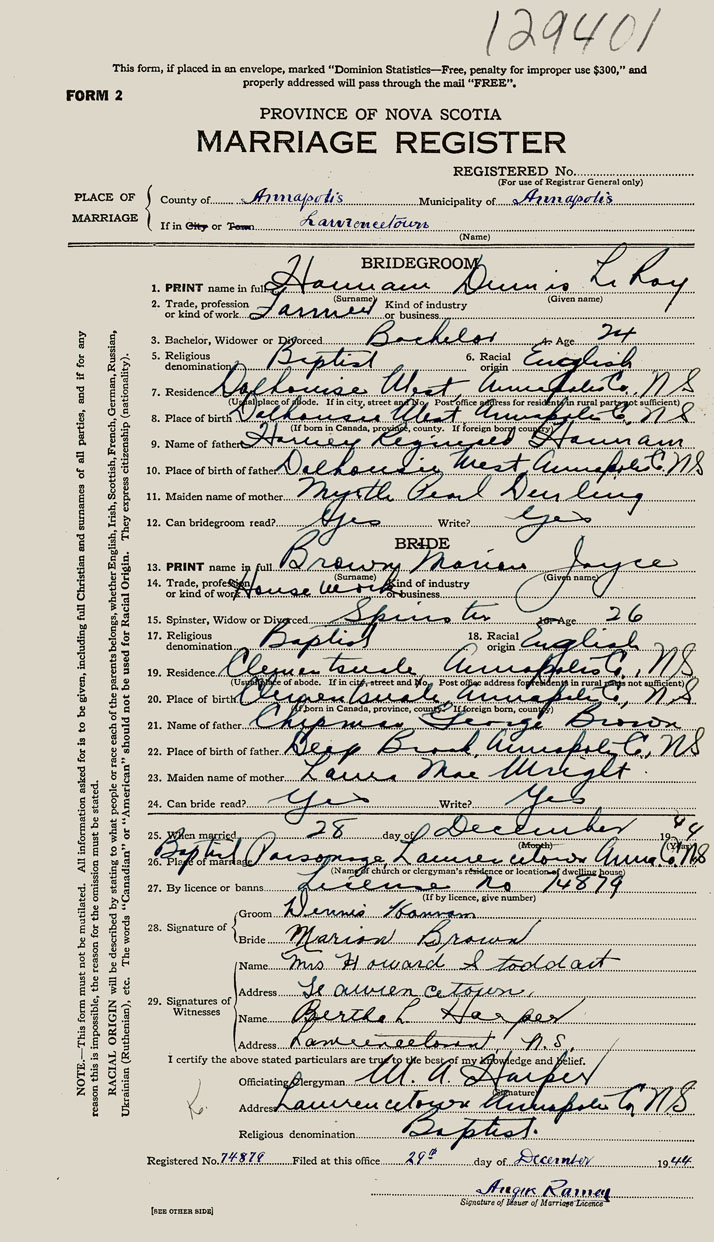 129401
This form, if placed in an envelope, marked “Dominion Statistics—Free, penalty for improper use $300,” and
properly addressed will pass through the mail “FREE”.
FORM 2
PROVINCE OF NOVA SCOTIA
MARRIAGE REGISTER
REGISTERED No.
(For use of Registrar General only)
PLACE OF MARRIAGE
County of Annapolis Municipality of Annapolis
If in City or Town Lawrencetown
(Name)
BRIDEGROOM
1. PRINT name in full Hannam Dennis Le Roy
(Surname) (Given name)
2. Trade, profession or kind of work Farmer Kind of industry or business
3. Bachelor, Widower or Divorced Bachelor 4. Age 24
5. Religious denomination Baptist 6. Racial origin English
7. Residence Dalhousie West Annapolis Co, NS
(Usual place of abode. If in city, street and No. Post office address for residents in rural parts not sufficient)
8. Place of birth Dalhousie West, Annapolis Co, NS
(If born in Canada, province, county. If foreign born, country)
9. Name of father Harvey Reginald Hannam
10. Place of birth of father Dalhousie West Annapolis Co. NS
11. Maiden name of mother Myrtle Pearl
12. Can bridegroom read? Yes Write? Yes
BRIDE
13. PRINT name in full Brown Marion Joyce
(Surname) (Given name)
14. Trade, profession or kind of work House work Kind of industry or business
15. Spinster, Widow or Divorced Spinster 16. Age 26
17. Religious denomination Baptist 18. Racial origin English
19. Residence Clementsvale Annapolis Co., NS
(Usual place of abode. If in city, street and No. Post office address for residents in rural parts not sufficient)
20. Place of birth Clementsvale, Annapolis Co, NS
(If born in Canada, province, county. If foreign born, country)
21. Name of father Chipman George Brown
22. Place of birth of father Deep Brook, Annapolis Co, NS
23. Maiden name of mother Laura Mae Wright
24. Can bride read? Yes Write? Yes
25. When married 28 day of December 1944
(Month) (Year)
26. Place of marriage Baptist Parsonage, Lawrencetown Anna Co. NS
(Name of church or clergyman’s residence or location of dwelling house)
27. By licence or banns License No 74879
(If by licence, give number)
28. Signature of
Groom Dennis Hannam
Bride Marion Brown
29. Signatures of Witnesses
Name Mrs Howard Stoddart
Address Lawrencetown.
Name Bertha L Harper
Address Lawrencetown N.S.
I certify the above stated particulars are true to the best of my knowledge and belief.
Officiating Clergyman M. A. Harper
(Signature)
Address Lawrencetown Annapolis Co, NS
Religious denomination Baptist.
Registered No. 74879 Filed at this office 29th day of December 1944
Signature of Issuer of Marriage Licence
[SEE OTHER SIDE]
NOTE.—This form must not be mutilated. All information asked for is to be given, including full Christian and surnames of all parties, and if for any
reason this is impossible, the reason for the omission must be stated.
RACIAL ORIGIN will be described by stating to what people or race each of the parents belongs, whether English, Irish, Scottish, French, German, Russian,
Ukrainian (Ruthenian), etc. The words “Canadian” or “American” should not be used for Racial Origin. They express citizenship (nationality).